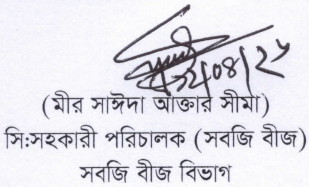 (মীর সাঈদা আক্তার সীমা)
সি:সহকারী পরিচালক (সবজি বীজ)
সবজি বীজ বিভাগ